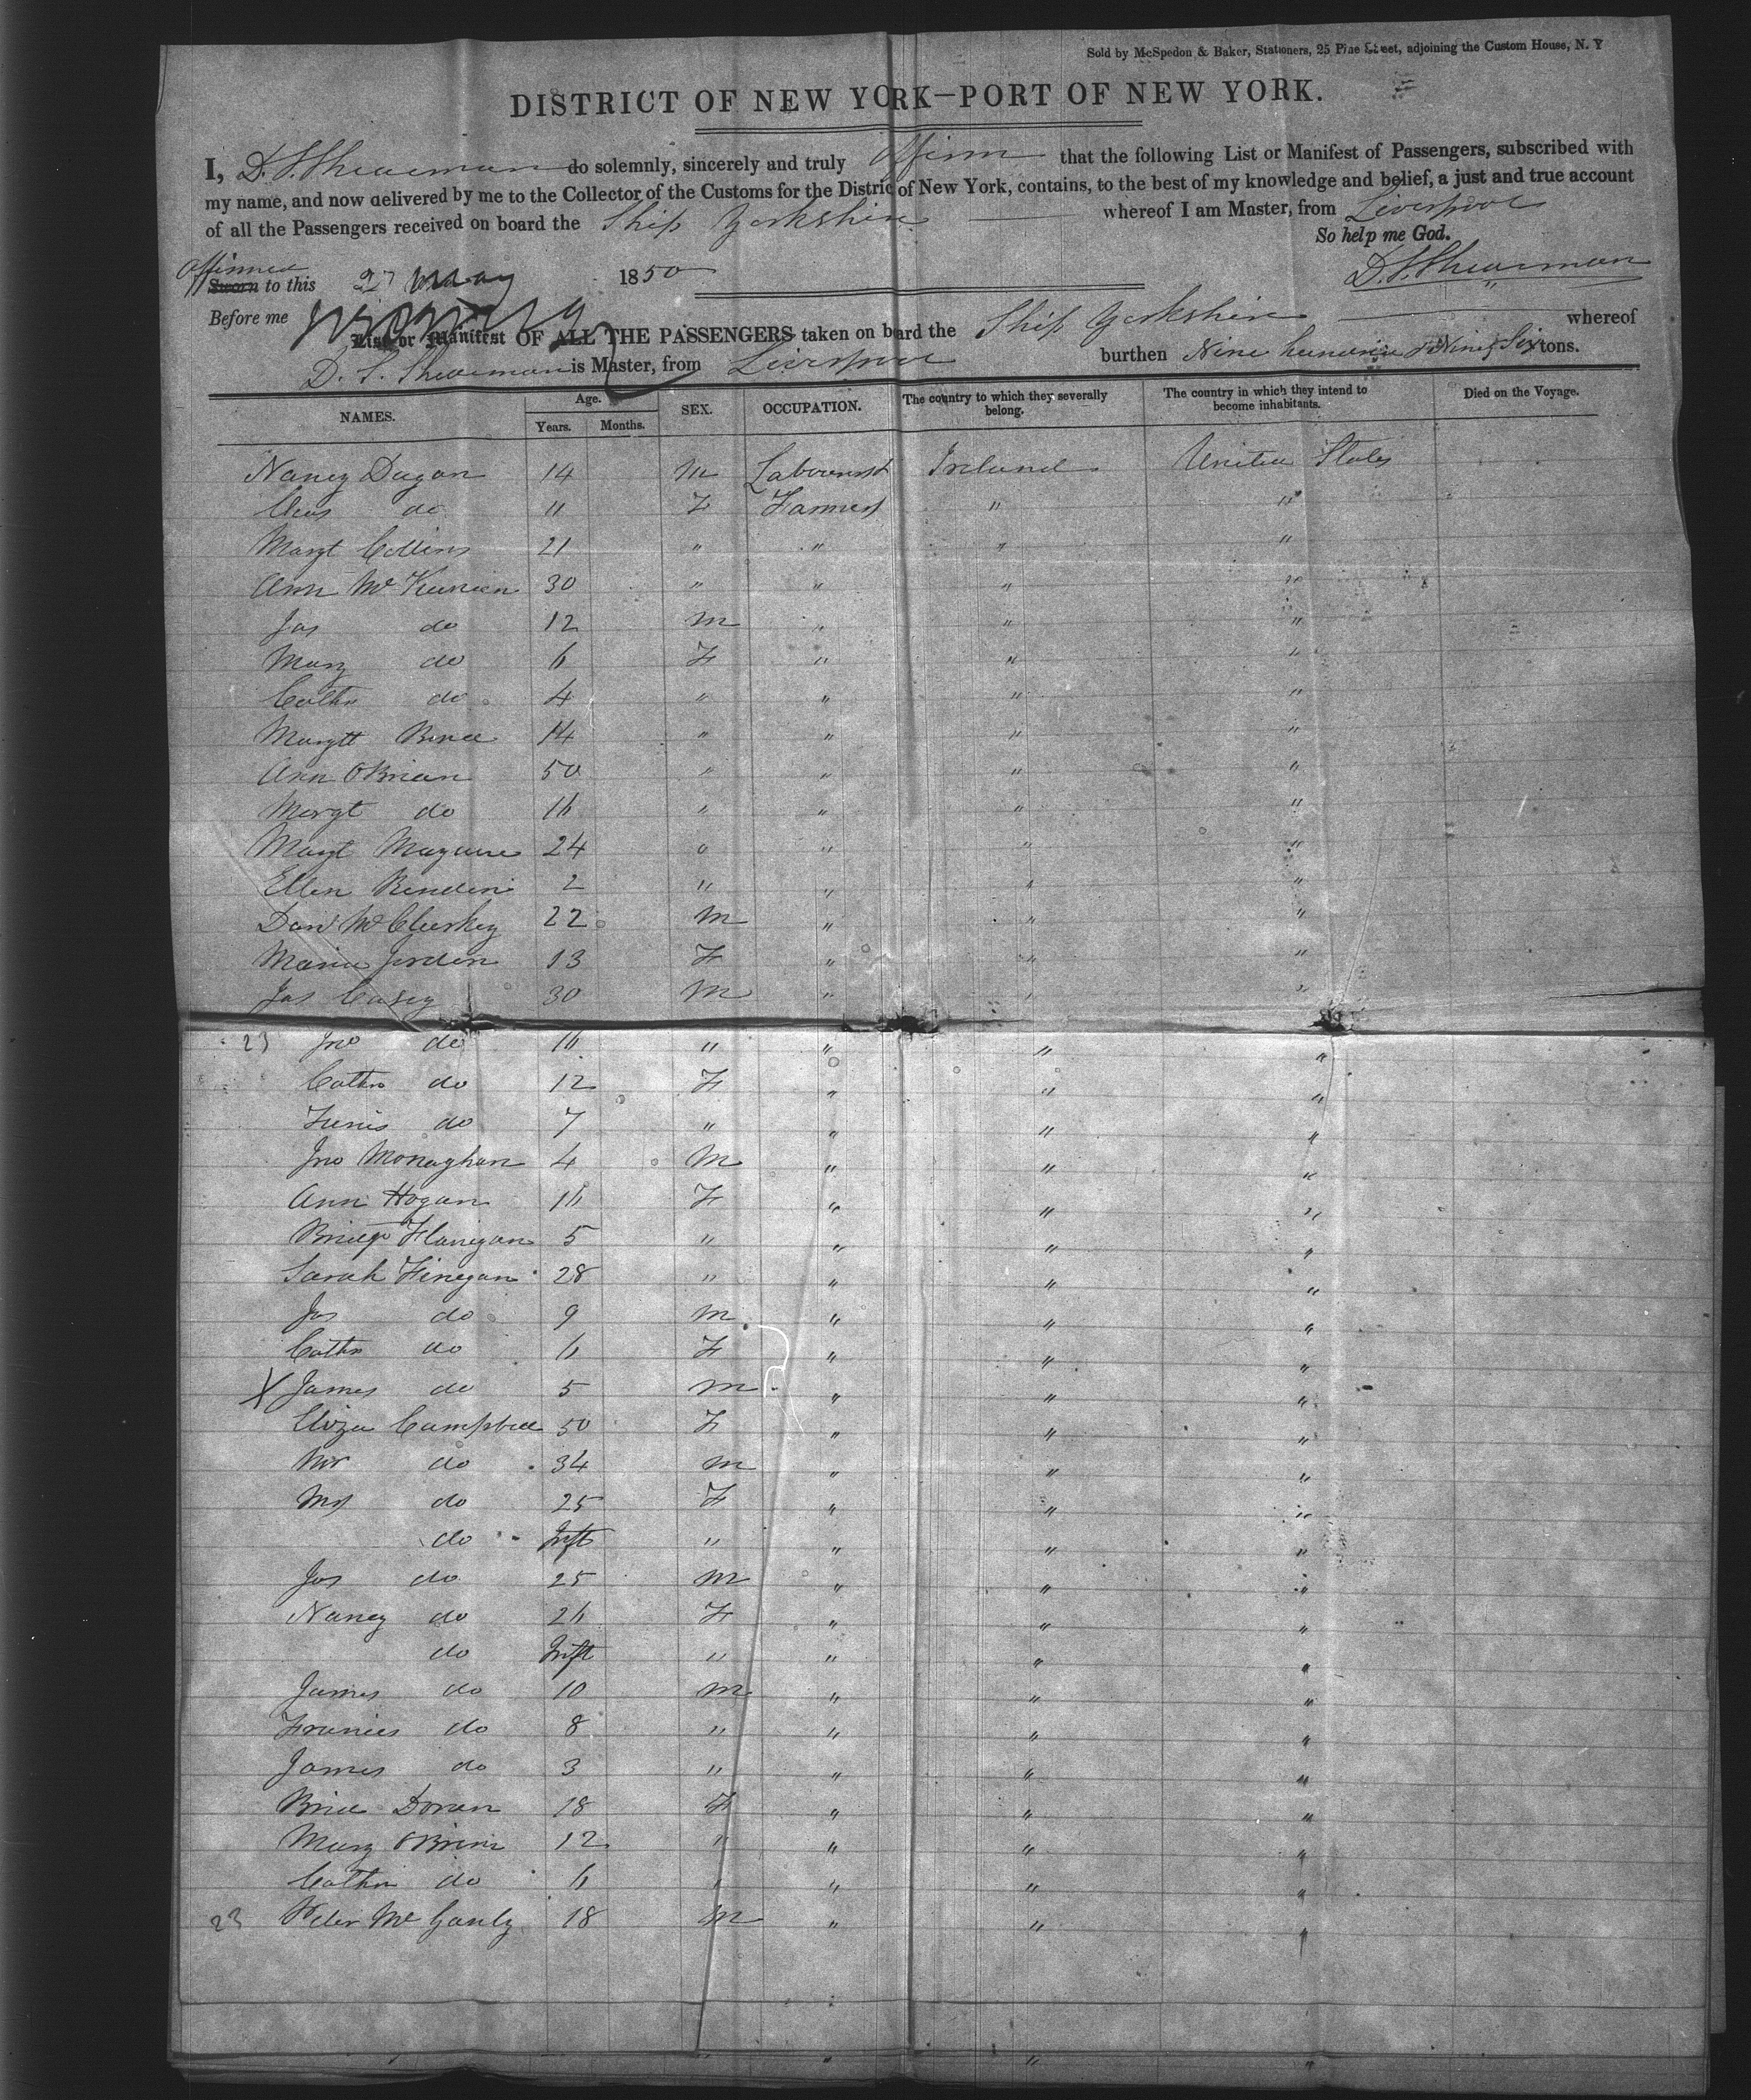 Sold by McSpedon & Baker, Stationers, 25 Pine Street, adjoining the Custom House, N. Y
DISTRICT OF NEW YORK—PORT OF NEW YORK.
I, D. S. Shearman do solemnly, sincerely and truly affirm that the following List or Manifest of Passengers, subscribed with
my name, and now delivered by me to the Collector of the Customs for the District of New York, contains, to the best of my knowledge and belief, a just and true account
of all the Passengers received on board the Ship Yorkshire whereof I am Master, from Liverpool
So help me God.
Affirmed
Sworn to this 27 May 1850 D. S. Shearman
Before me
List or Manifest OF ALL THE PASSENGERS taken on board the Ship Yorkshire whereof
D. S. Shearman is Master, from Liverpool burthen Nine hundred & Ninety Six tons.
NAMES. Age. Years. Months. SEX. OCCUPATION. The country to which they severally belong. The country in which they intend to become inhabitants. Died on the Voyage.
Nancy Dugan 14 M Labourers Ireland United States
do 11 F Farmers " "
Margt Collins 21 " " " "
Ann McKiernan 30 " " " "
Jas do 12 M " " "
Mary do 6 F " " "
Cathn do 4 " " " "
Margtt 14 " " " "
Ann OBrian 50 " " " "
Margt do 16 " " " "
Margt Maguire 24 " " " "
Ellen 2 " " " "
Danl McCluskey 22 M " " "
Maria Jordan 13 F " " "
Jas Casey 30 M " " "
23 Jno do 16 " " " "
Cathn do 12 F " " "
do 7 " " " "
Jno Monaghan 4 M " " "
Ann Hogan 16 F " " "
Bridgt Flanigan 5 " " " "
Sarah Finegan 28 " " " "
Jas do 9 M " " "
Cathn do 6 F " " "
X James do 5 M " " "
Eliza Campbell 50 F " " "
Mr do 34 M " " "
Mrs do 25 F " " "
do Inft " " " "
Jas do 25 M " " "
Nancy do 26 F " " "
do Inft " " " "
James do 10 M " " "
Francis do 8 " " " "
James do 3 " " " "
Doran 18 F " " "
Mary OBrien 12 " " " "
Cathn do 6 " " " "
23 Peter McGauly 18 M " " "
" " " "